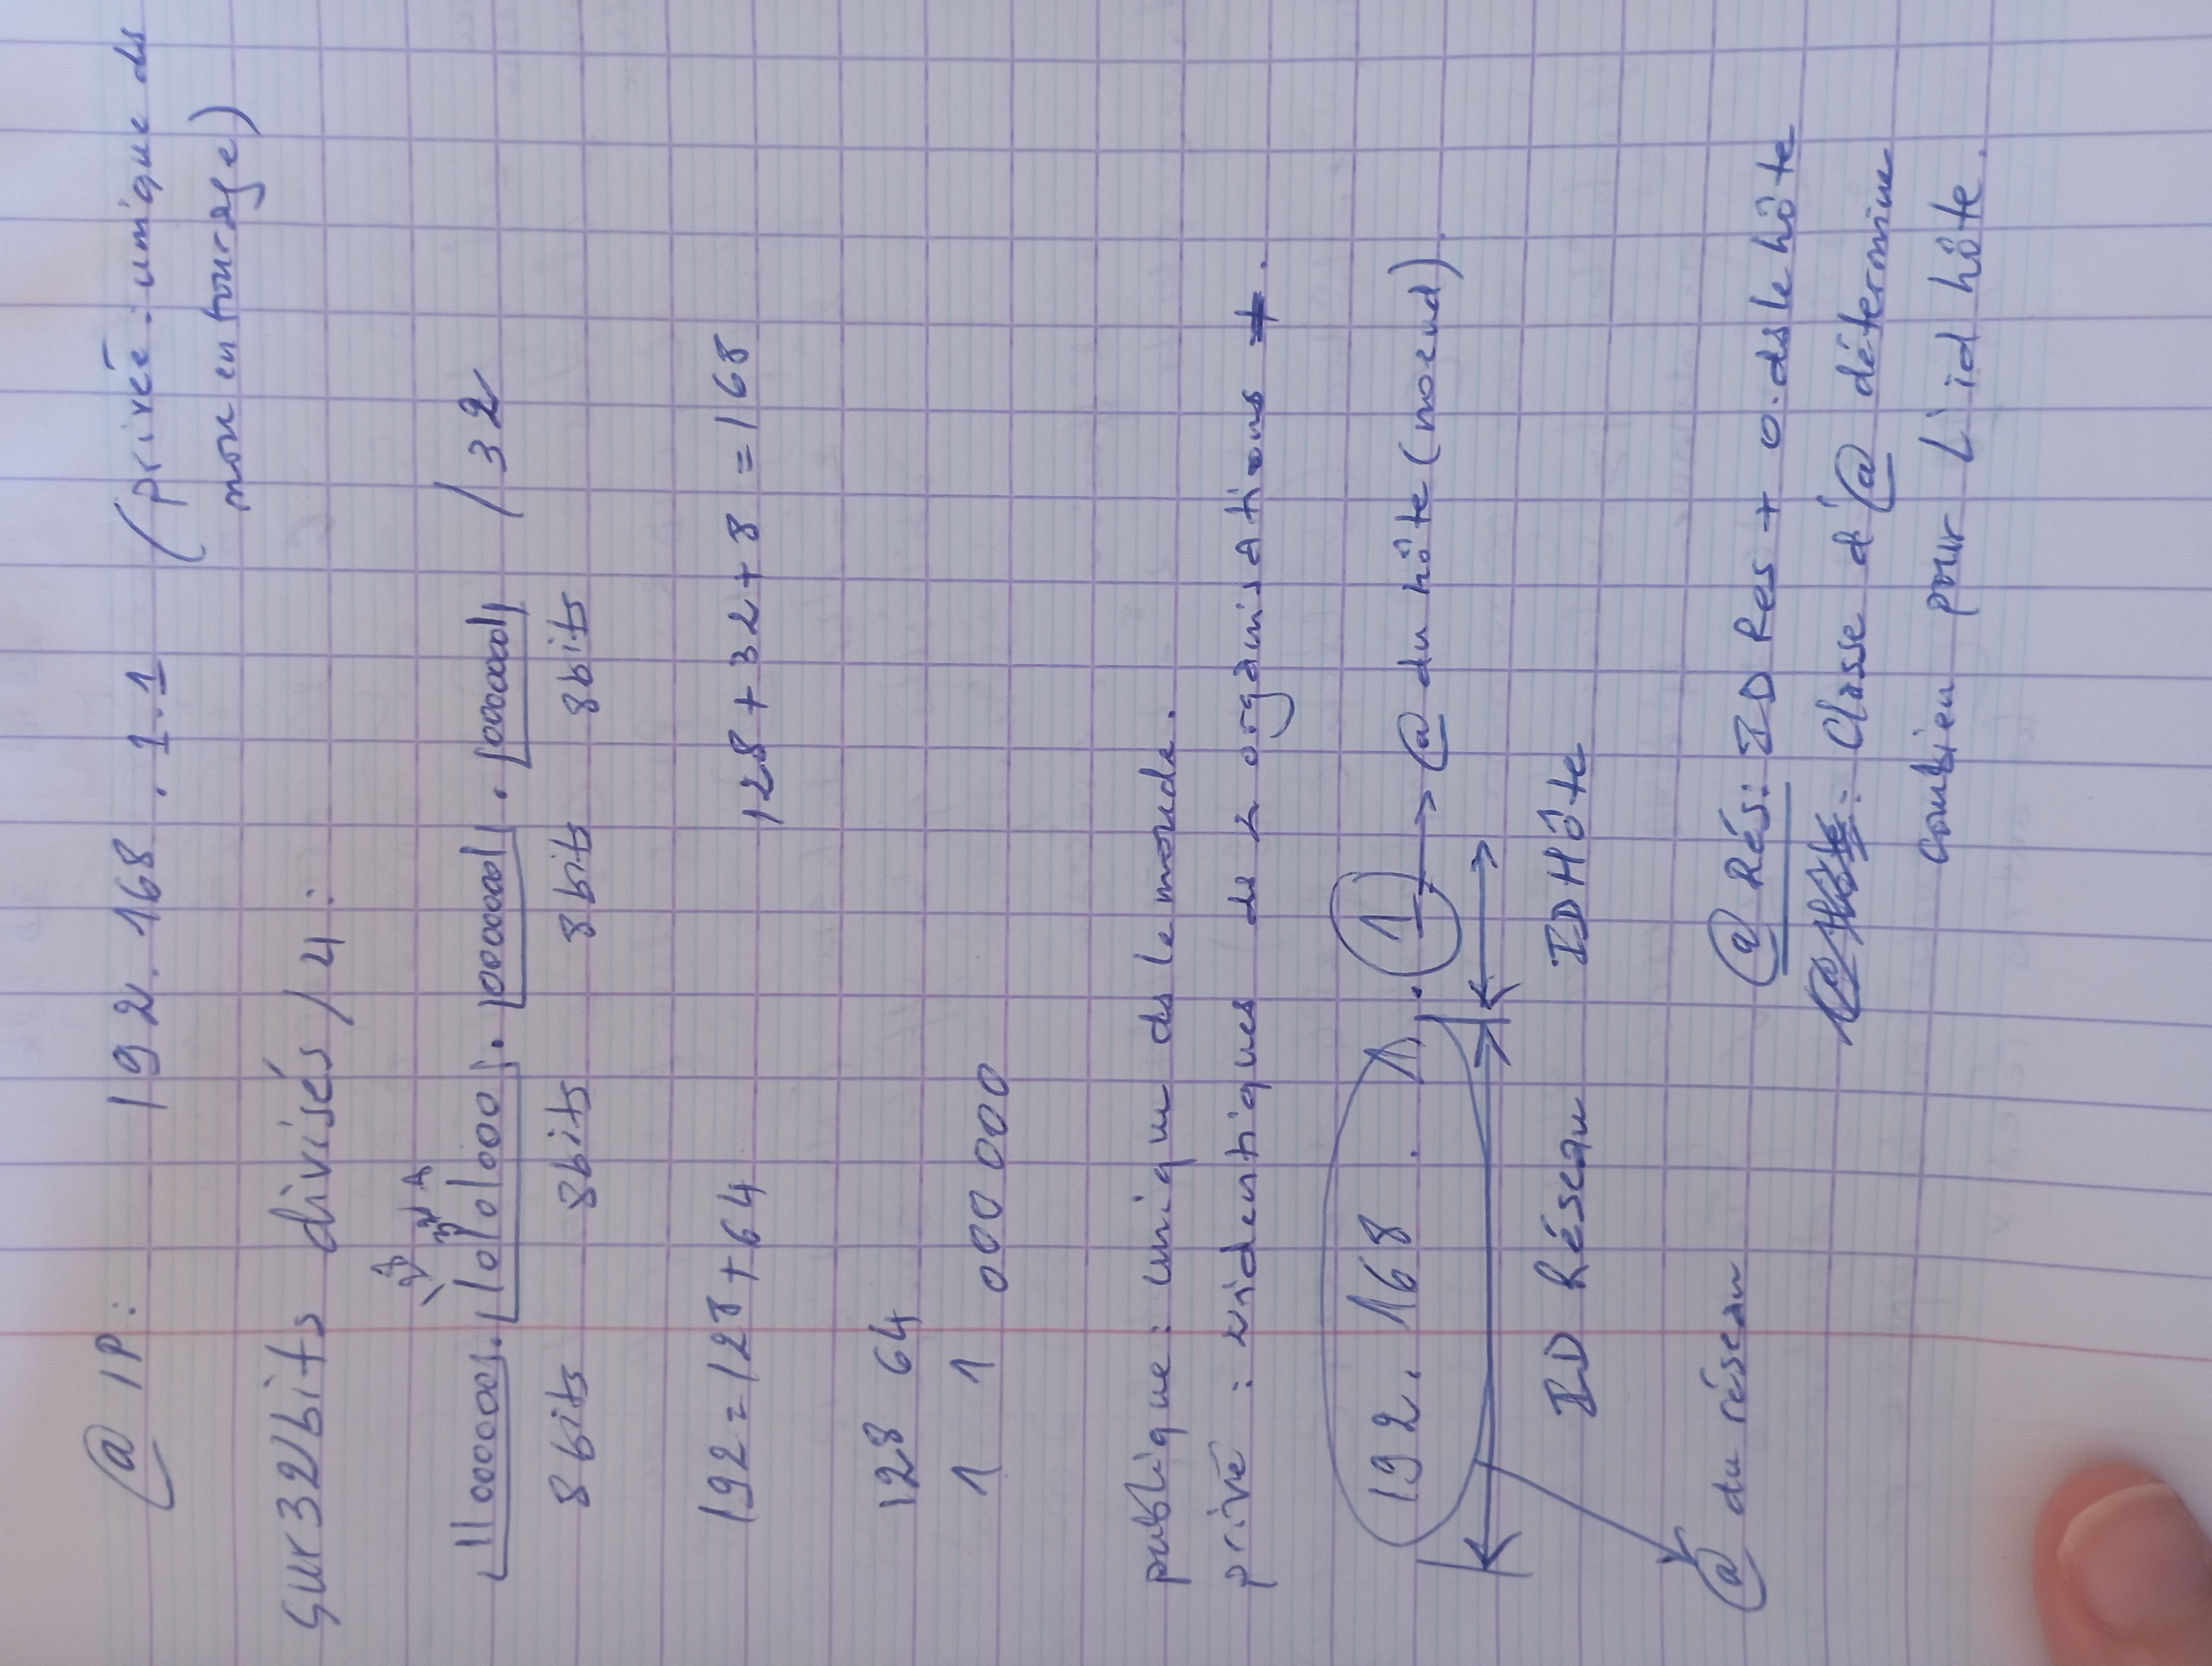 @ IP: 192.168.1.1 (privée: unique ds
mon entourage)
sur 32 bits divisés /4:
128 32 8
11000000. 10101000. 00000001. 00000001 /32
8 bits 8 bits 8 bits 8 bits
192 = 128 + 64 128 + 32 + 8 = 168
128 64
1 1 000 000
publique: unique ds le monde.
privé: 2 identiques ds 2 organisations ≠.
192. 168 . 1 . 1 → @ du hôte (noeud).
ID Réseau ID Hôte
@ du réseau
@ Rés: ID Res + 0. ds le hôte
: Classe d'@ détermine
combien pour l'id hôte.